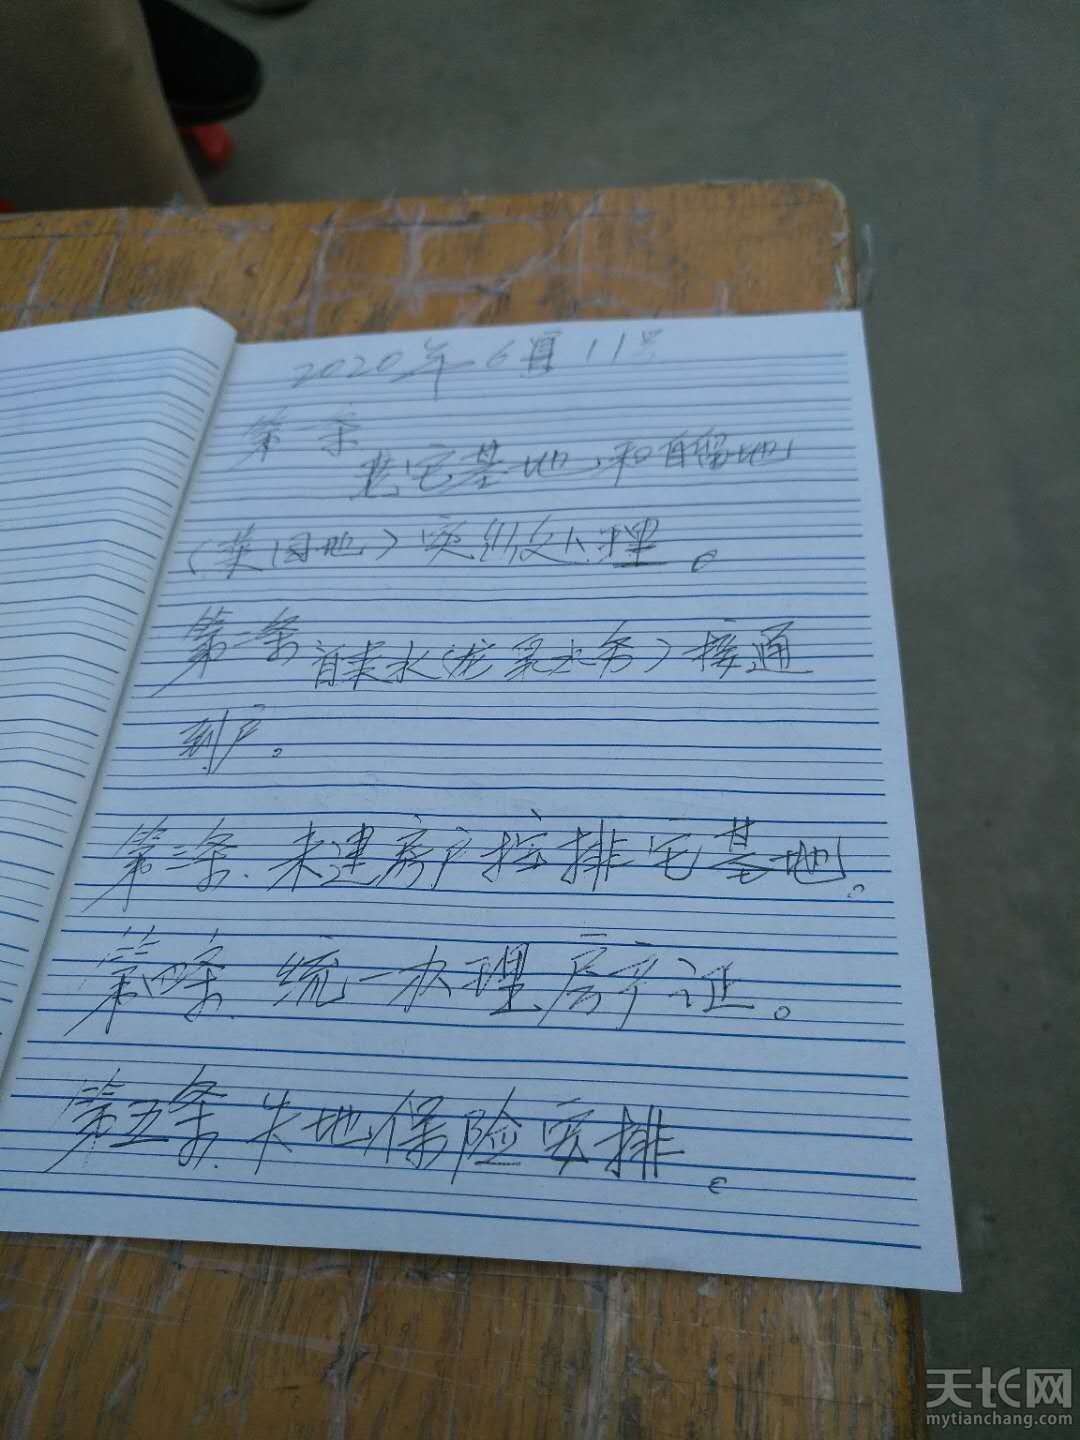 2020年6月11号
第一条
老宅基地和自留地
(菜园地)实行处理。
第二条 自来水(龙泉水务)接通
到户。
第三条、未建房户按排宅基地。
第四条、统一办理房产证。
第五条、失地保险安排。
天长网
mytianchang.com